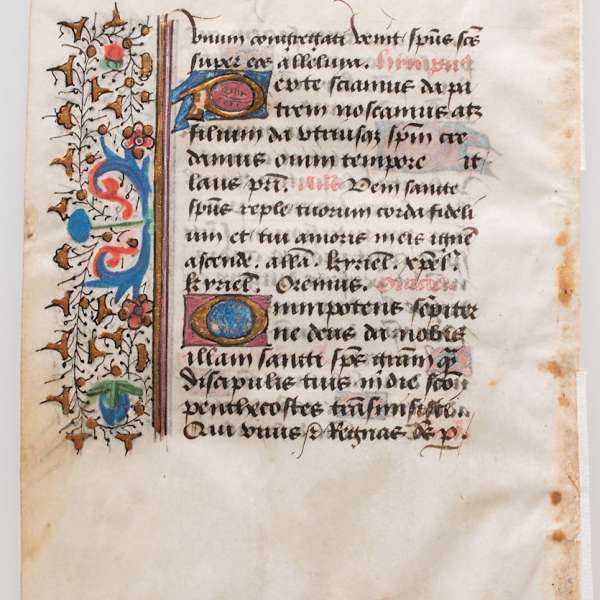 vnum congregati venit spūs scs
super eos alleluya. Hympnus
Per te sciamus da pa
trem noscamus atz
filium da vtriusqz spm cre
damus omni tempore it
laus pri. Veni sancte
spūs reple tuorum corda fideli
um et tui amoris in eis ignem
ascende. alla. kyriel. xpel.
kyriel. Oremus.
Omnipotens sempiter
ne deus da nobis
illam sancti sps gram
discipulis tuis in die
penthecostes transmisisti
Qui viuis & Regnas ds p.